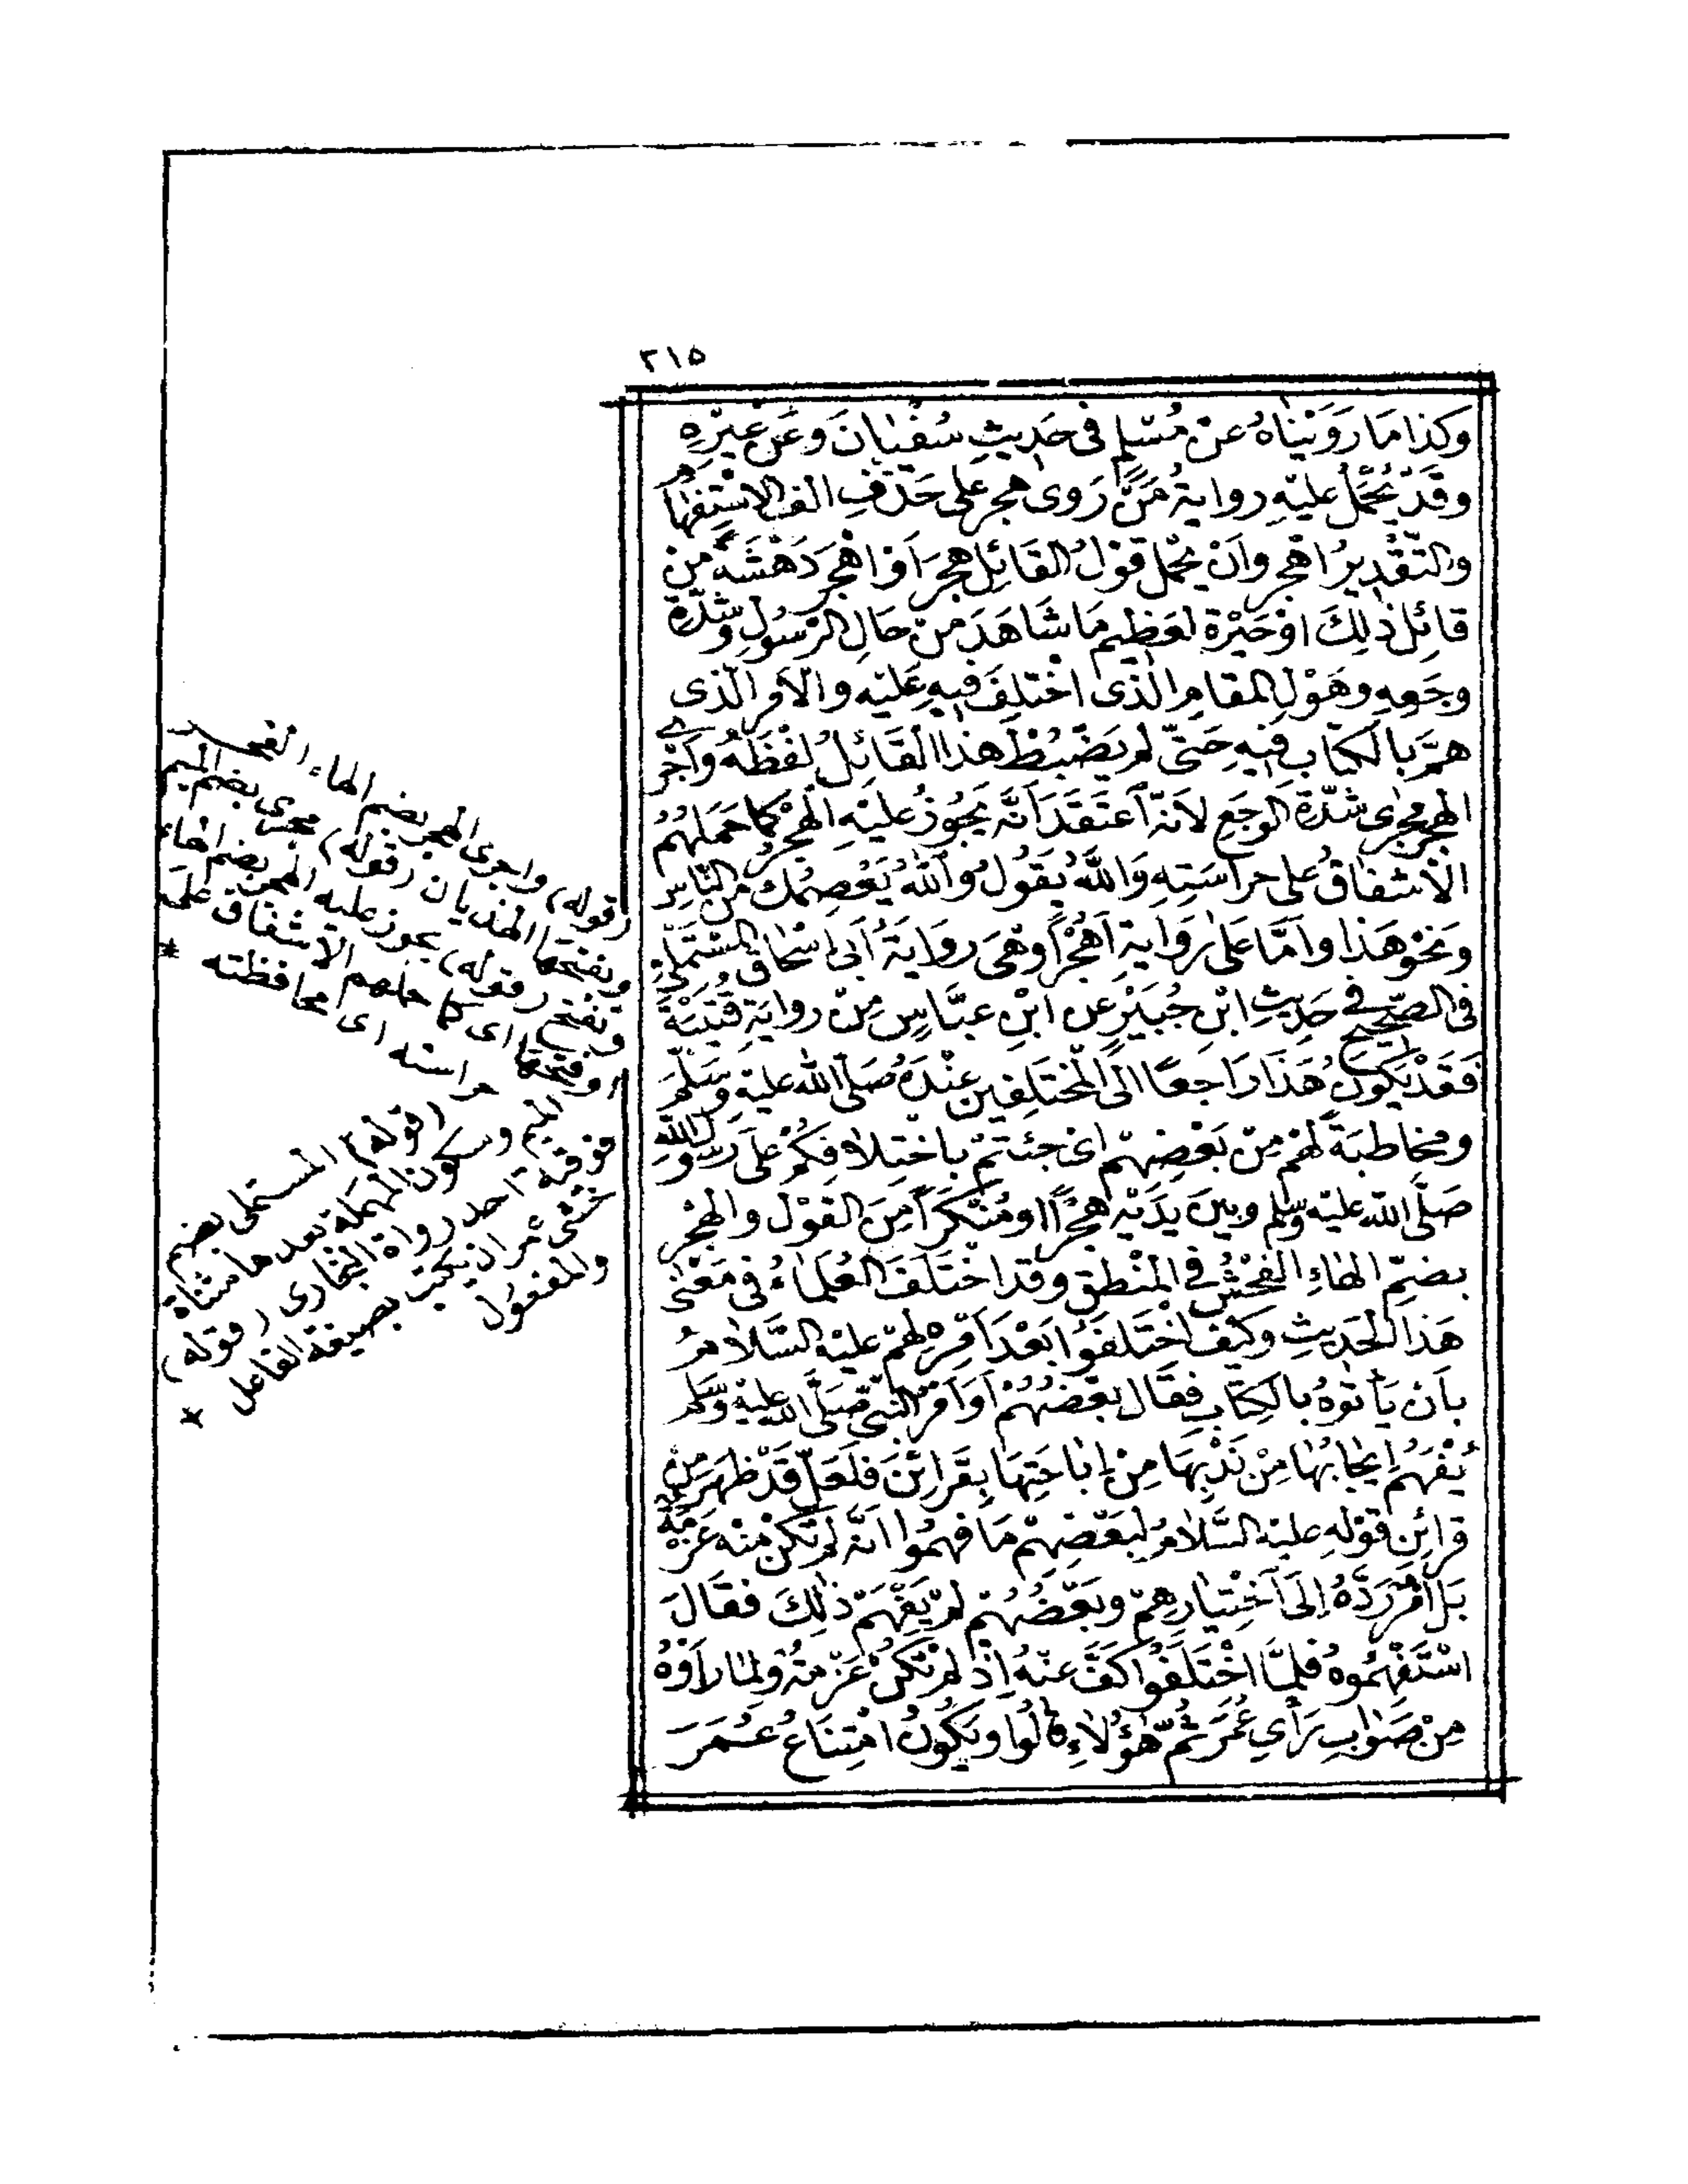 ٢١٥
وَكَذا مَا رَوَيْنَاهُ عَنْ مُسْلِمٍ فى حَدِيثِ سُفْيَانَ وَعَنْ غَيْرِهِ
وقَدْ تُحْمَلُ عليْهِ روايةُ مَنْ رَوى هجر على حَذْفِ الف الاسْتِفْهَامِ
والتَّقْدِيرُ اَهجر واَنْ يُحْمَلَ قوْلُ القَائِلِ هجرَ اَوْ اَهْجَرَ دَهْشَةً مِن
قائِلِ ذٰلِكَ اوْ حَيْرَةً لعَظِيمِ مَا شَاهَدَ مِنْ حَالِ الرَّسُولِ وشِدَّةِ
وجَعِهِ وهَوْلِ المقامِ الَّذى اخْتُلِفَ فيهِ عَلَيْه والاَمْرِ الَّذى
همَّ بالكِتَابِ فِيهِ حَتّى لم يَضْبِطْ هٰذا القَائِلُ لَفْظَهُ وَاَجْرى
الهجر مجرى شدَّةِ الوجَعِ لاَ اَنَّهُ اعْتَقَدَ اَنَّهُ يَجُوزُ عليْهِ الهجْرُ كما حَمَلَهُمُ
الاشفاقُ على حِراسَتِهِ وَاللّهُ يقُولُ واللّهُ يَعْصِمُكَ مِنَ النّاسِ
ونَحْوَ هَذا وامَّا على رِوَايةِ اَهُجْرًا وهْىَ روايَةُ اَبِى اِسْحَاق المُسْتَمْلِى
فى الصّحِيحِ فى حَدِيثِ ابْنِ جُبَيْرٍ عن ابْنِ عبَّاسٍ مِنْ روايَةِ قُتَيْبَةَ
فَقَدْ يَكُونُ هَذَا رَاجِعًا الى المُخْتَلِفِينَ عِنْدَهُ صَلّى اللّه عليْهِ وسَلَّمَ
ومخَاطبَةً لهُمْ مِنْ بَعْضِهِمْ اى جئتُمْ باخْتِلافِكُمْ على رَسُولِ اللّهِ
صَلَّى اللّه عليْهِ وسَلَّم وبينَ يَدَيْهِ هُجْرًا ومُنْكَرًا مِنَ القوْلِ والهُجْرُ
بضمِّ الهاءِ الفُحْشُ فى المَنْطِقِ وقدِ اخْتَلَفَ العُلَمَاءُ فى مَعْنى
هَذا الحَدِيثِ وكَيْفَ اخْتَلَفُوا بَعْدَ اَمْرِهِ لهُمْ عليْهِ السَّلامُ
بأنْ يَأْتُوهُ بالكِتَابِ فقَالَ بعْضُهُمْ اَوَامِرُ النَّبِىِّ صَلَّى اللّه عليْهِ وسَلَّم
يُفْهَمُ إيجَابُهَا مِنْ نَدْبِهَا مِنْ إبَاحَتِهَا بِقَرائِنَ فلَعَلَّ قدْ ظهَرَ مِنْ
قرائِنِ قوْلِهِ عليْهِ السَّلَامُ لبَعْضِهِمْ مَا فهِمُوا اَنَّهُ لم تكُنْ مِنْه عزْمةٌ
بَلْ اَمْرٌ رَدَّهُ إلى اخْتِيارِهِمْ وبَعْضُهُمْ لم يَفْهَمْ ذٰلِكَ فقَالَ
اسْتَفْهِمُوهُ فلمَّا اخْتَلَفُوا كَفَّ عنْهُ اِذْ لمْ تَكُنْ عَزْمةً ولمَا رَاَوْهُ
مِنْ صَوَابِ رَأْىِ عُمَرَ ثُمَّ هٰؤُلَاءِ قالُوا ويَكُونُ امْتِنَاعُ عُمَرَ
(قوله) واجرى الهجر بضم الهاء الفحش
وبفتحها الهذيان (قوله) مجرى بضم الميم
وتفتح (قوله) يجوز عليه الهجر بضم الهاء
وفتحها اى كما حملهم الاشفاق على
حراسته اى محافظته *
(قوله) المستملى بضم
الميم وسكون المهملة بعدها مثناة
فوقية احد رواة البخارى (قوله)
بصيغة الفاعل
والمفعول *